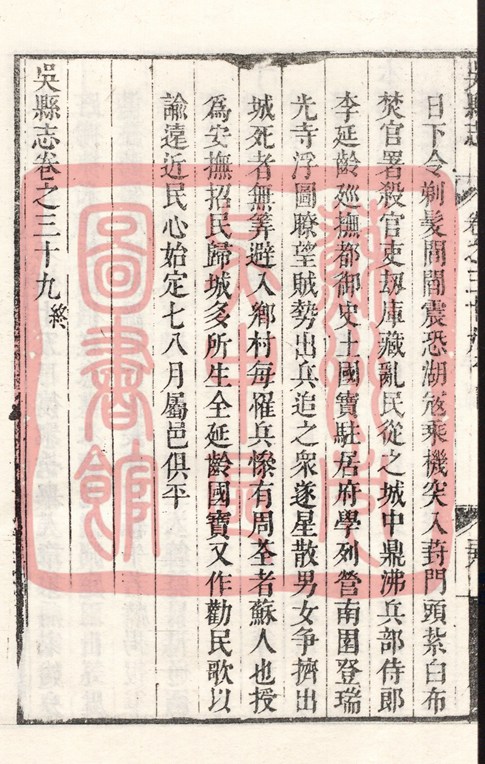 日下令剃髮閭閻震恐湖𡨥乘機突入葑門頭紮白布
焚官署殺官吏刼庫藏亂民從之城中鼎沸兵部侍郎
李延齡廵撫都御史土國寶駐居府學列營南園登瑞
光寺浮圖瞭望賊勢出兵追之衆遂星散男女争擠出
城死者無筭避入鄉村每罹兵慘有周荃者蘇人也授
爲安撫招民歸城多所生全延齡國寶又作勸民歌以
諭遠近民心始定七八月屬邑俱平
吳縣志卷之三十九終
圖書館